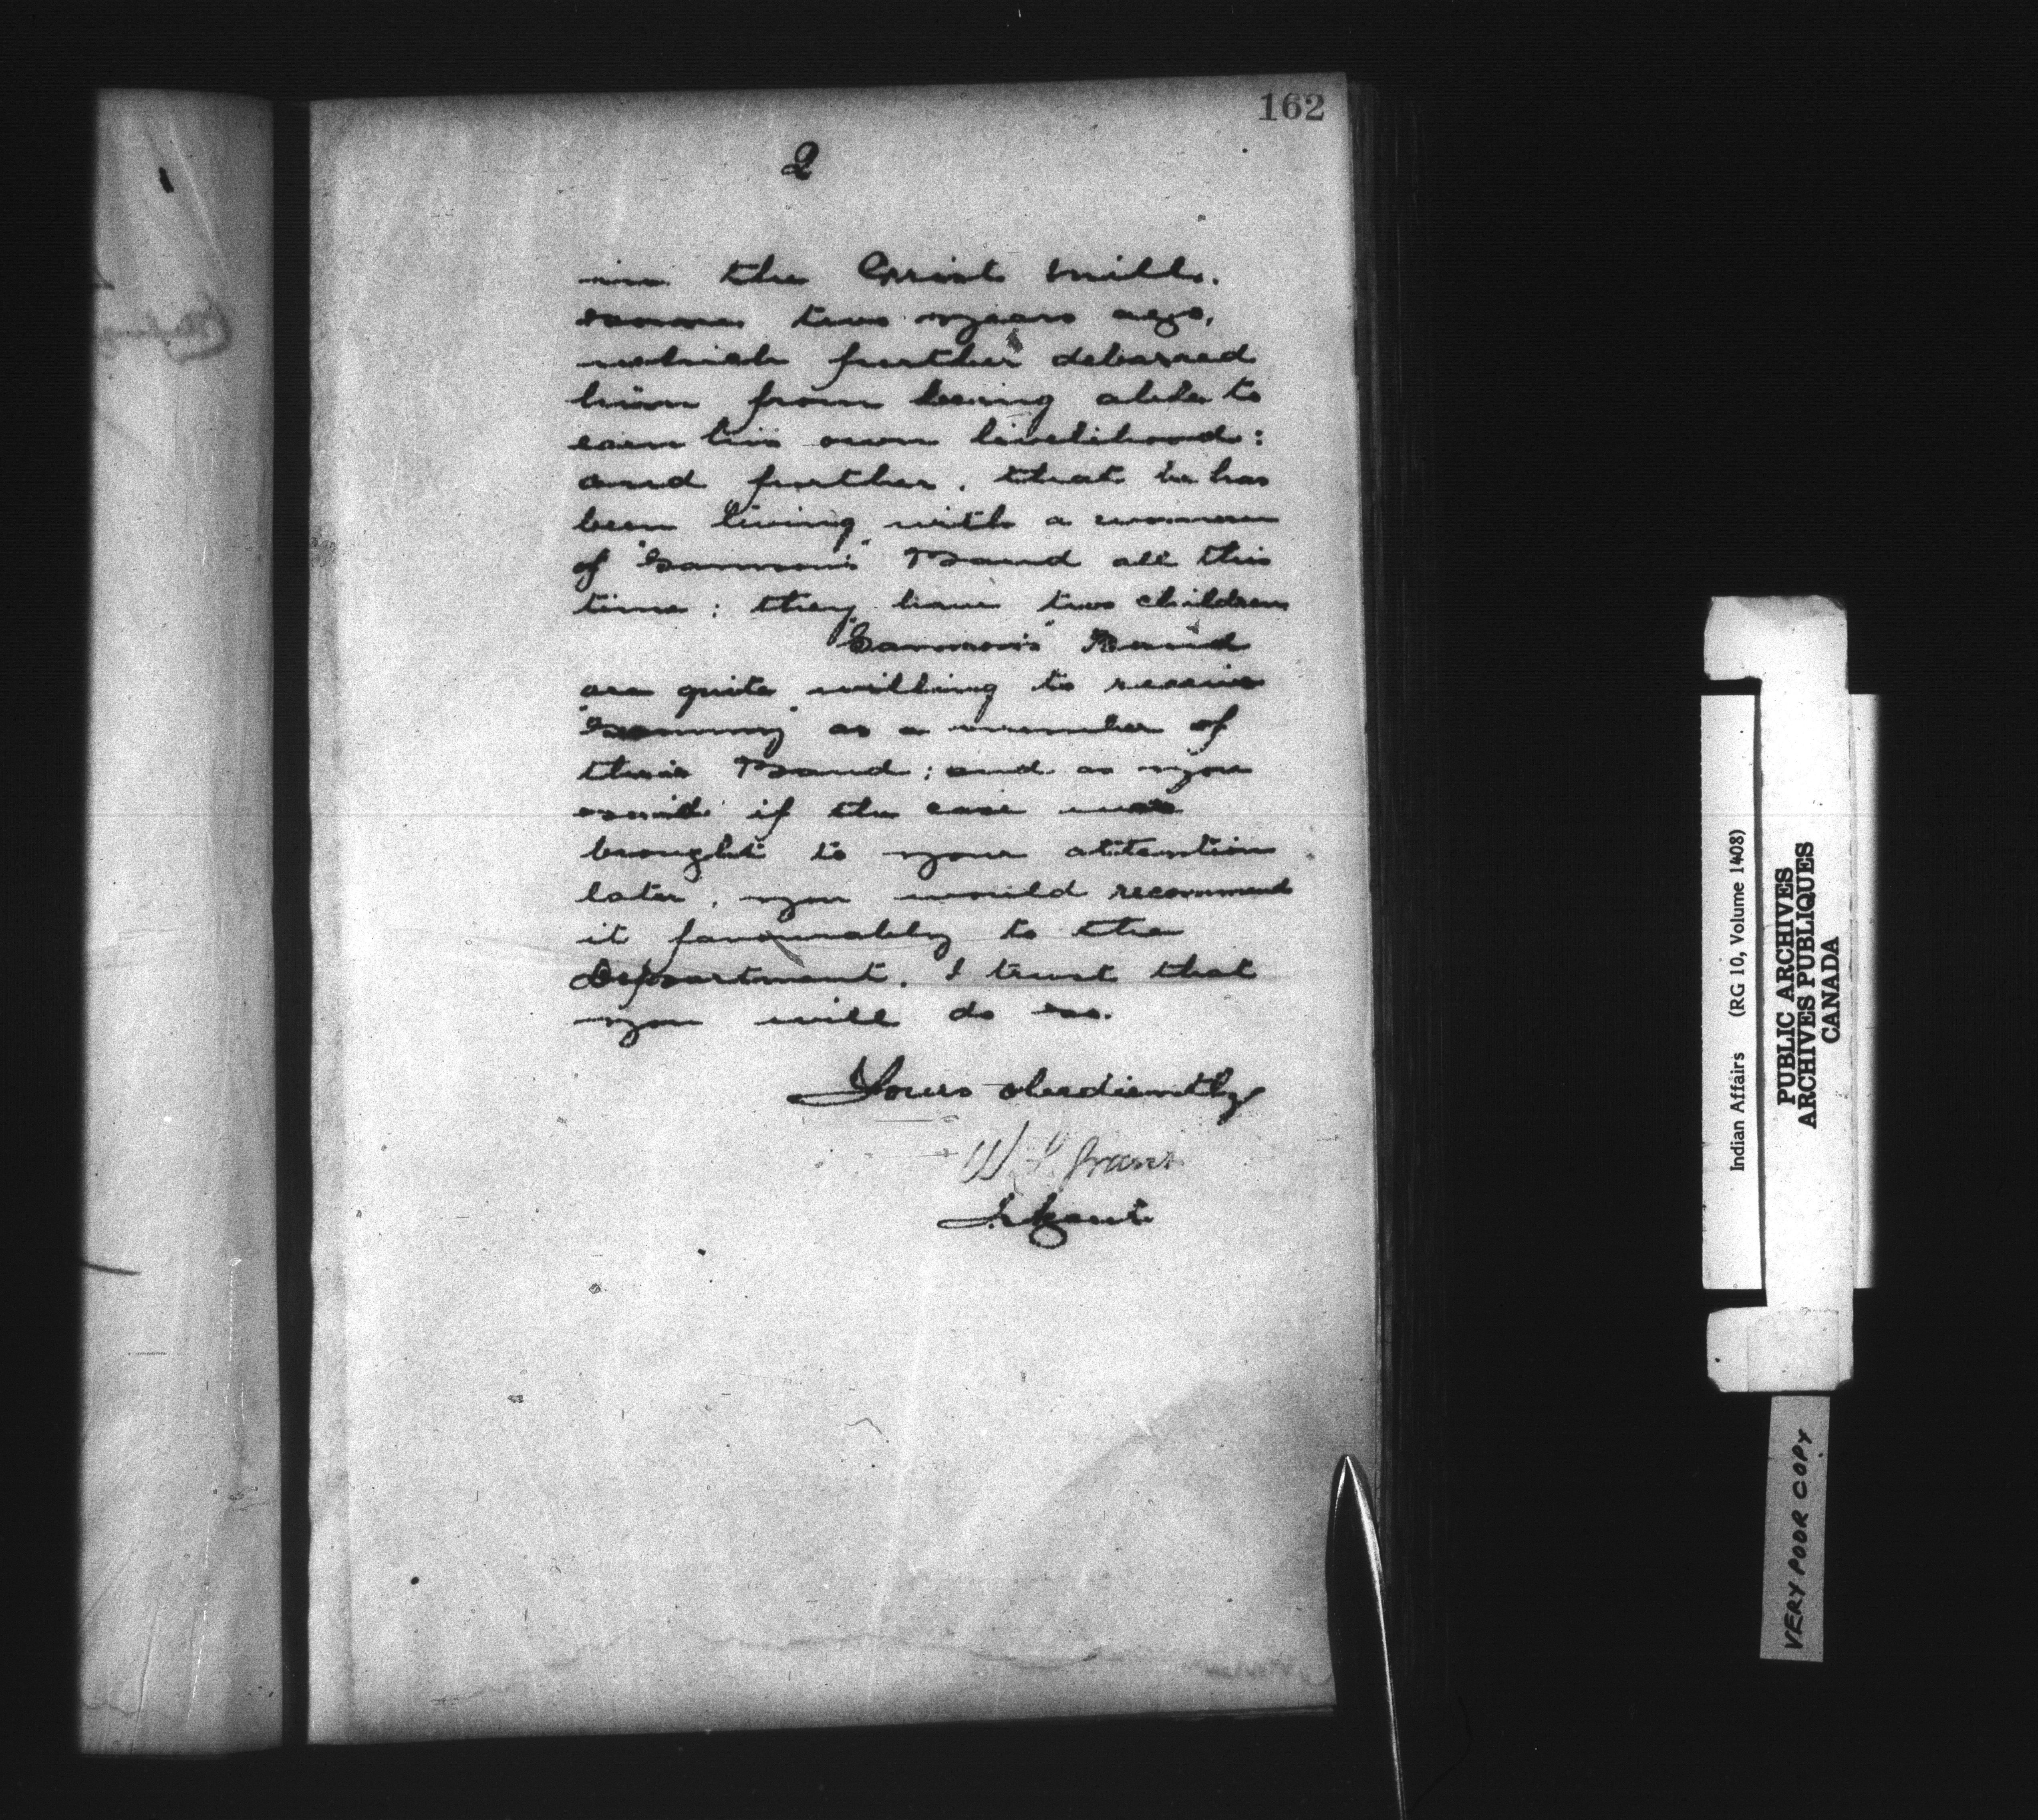 162
2
in the Grist Mill.
some two years ago,
which further debarred
him from being able to
earn his own livelihood:
and further, that he has
been living with a woman
of "Sammson's" Band all this
time: they have two children
"Sammson's" Band
are quite willing to receive
"Sammy" as a member of
their Band; and as you
said if the case was
brought to your attention
later, you would recommend
it favourably to the
Department. I trust that
you will do so.
Yours obediently
W S Grant
Agent
Indian Affairs (RG 10, Volume 1408)
PUBLIC ARCHIVES
ARCHIVES PUBLIQUES
CANADA
VERY POOR COPY